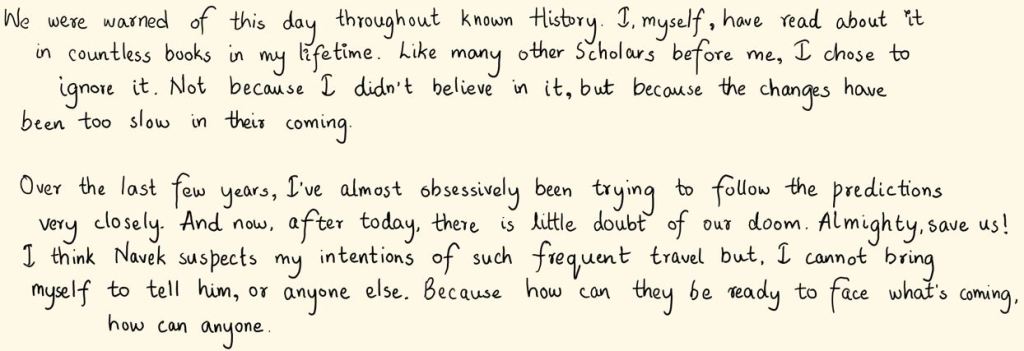 We were warned of this day throughout known History. I, myself, have read about it
in countless books in my lifetime. Like many other Scholars before me, I chose to
ignore it. Not because I didn't believe in it, but because the changes have
been too slow in their coming.
Over the last few years, I've almost obsessively been trying to follow the predictions
very closely. And now, after today, there is little doubt of our doom. Almighty, save us!
I think Navek suspects my intentions of such frequent travel but, I cannot bring
myself to tell him, or anyone else. Because how can they be ready to face what's coming,
how can anyone.